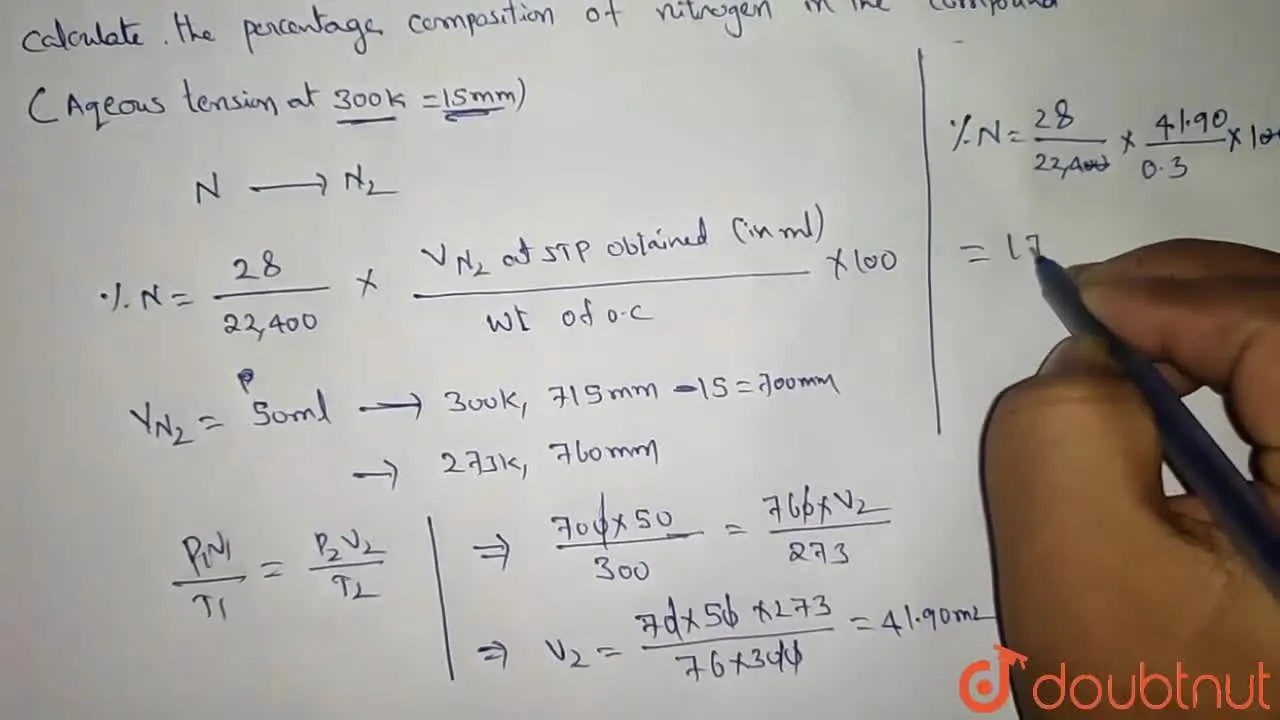 calculate . the percentage composition of nitrogen in the compound
(Aqeous tension at 300k = 15mm)
N ⟶ N₂
% N = 28/22,400 × V N₂ at STP obtained (in ml)/Wt of o.c × 100
V N₂ = 50ml ⟶ 300k, 715mm - 15 = 700mm
→ 273k, 760mm
P₁V₁/T₁ = P₂V₂/T₂
⇒ 700 × 50/300 = 760 × V₂/273
⇒ V₂ = 70 × 50 × 273/76 × 300 = 41.90ml
% N = 28/22,400 × 41.90/0.3 × 100
= 17
doubtnut